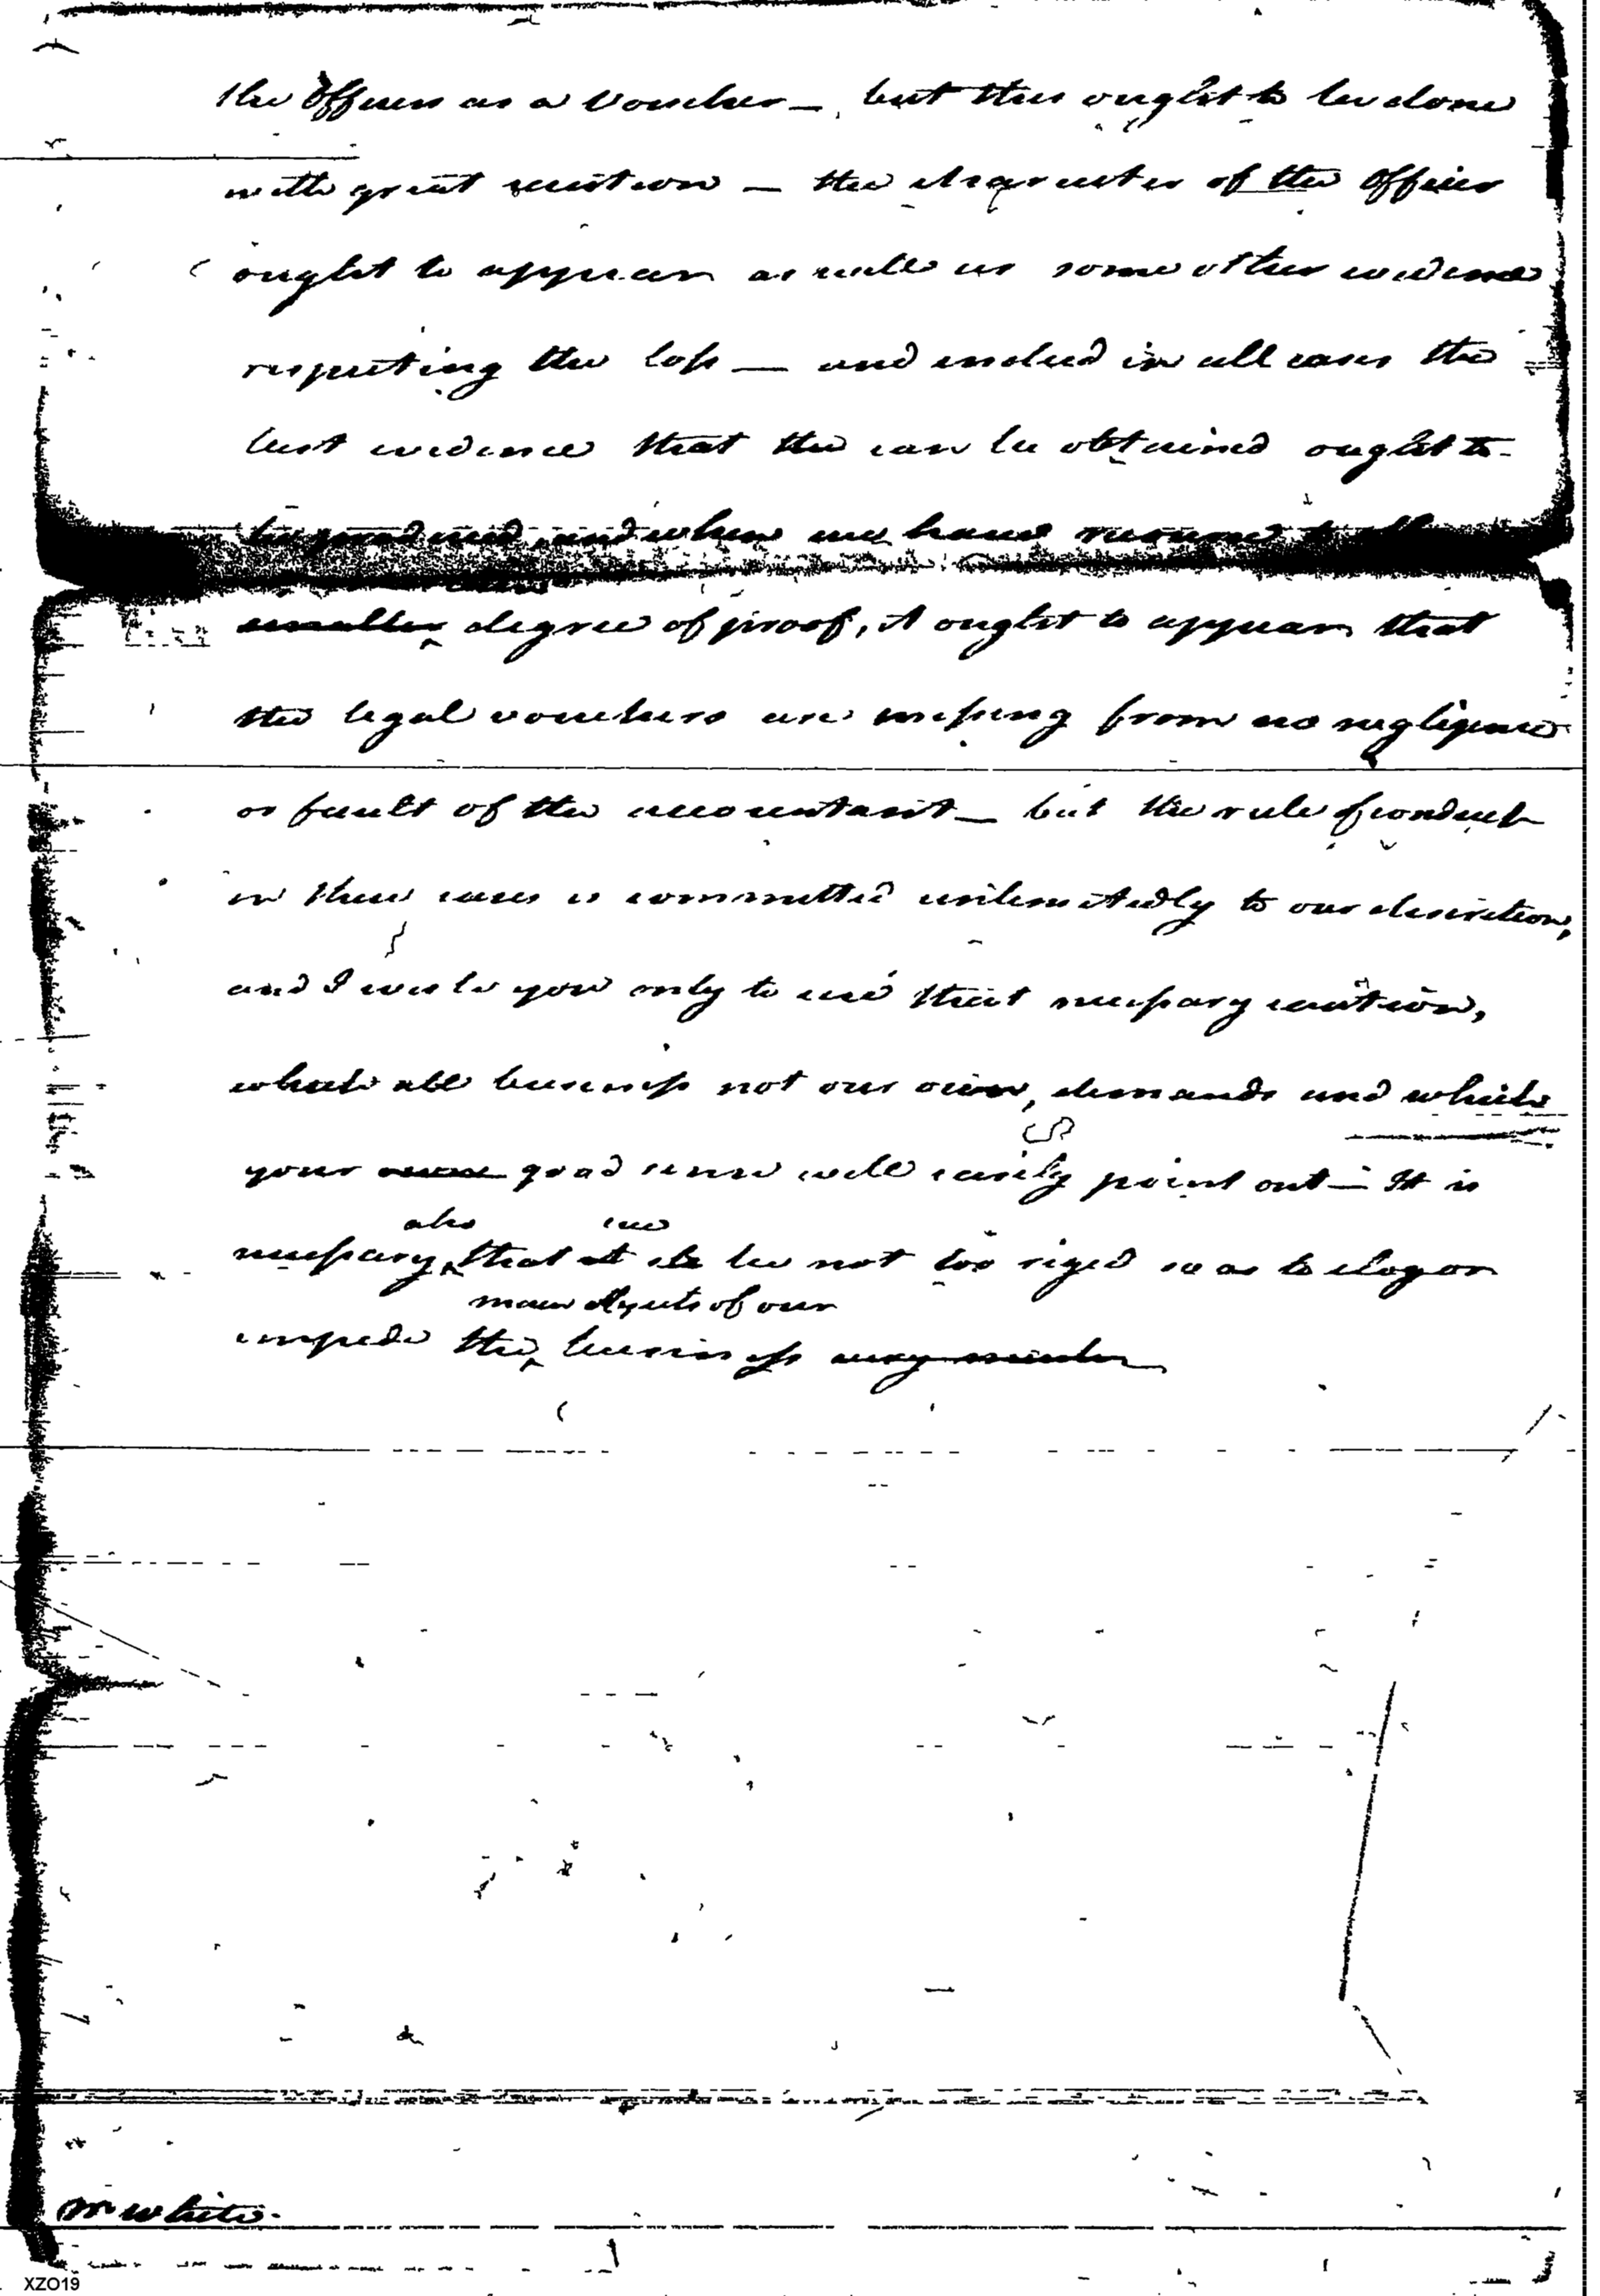 the Officers as a Voucher — but this ought to be done
with great caution — the character of the Officer
ought to appear as well as some other evidence
respecting the loss — and indeed in all cases the
best evidence that the can be obtained ought to
be produced, and when we have recourse to
smaller degree of proof, it ought to appear that
the legal vouchers are missing from no negligence
or fault of the accountant — but the rule of conduct
in these cases is committed unlimitedly to our discretion,
and I wish you only to use that necessary caution,
which all business not our own, demands and which
your good sense will easily point out — It is
also we
necessary that it be not too riged so as to clog or
main objects of our
impede the business
Mr White.
XZO19